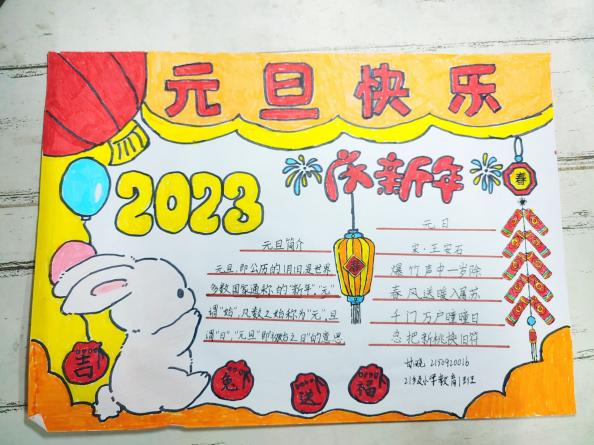 元旦快乐
2023
庆新年
春
元旦简介
元旦,即公历的1月1日是世界
多数国家通称的"新年","元"
谓"始",凡数之始称为"元",旦
谓"日","元旦"即"初始之日"的意思
元日
宋·王安石
爆竹声中一岁除
春风送暖入屠苏
千门万户曈曈日
总把新桃换旧符
2150920016
21级小学教育1班
吉
兔
送
福